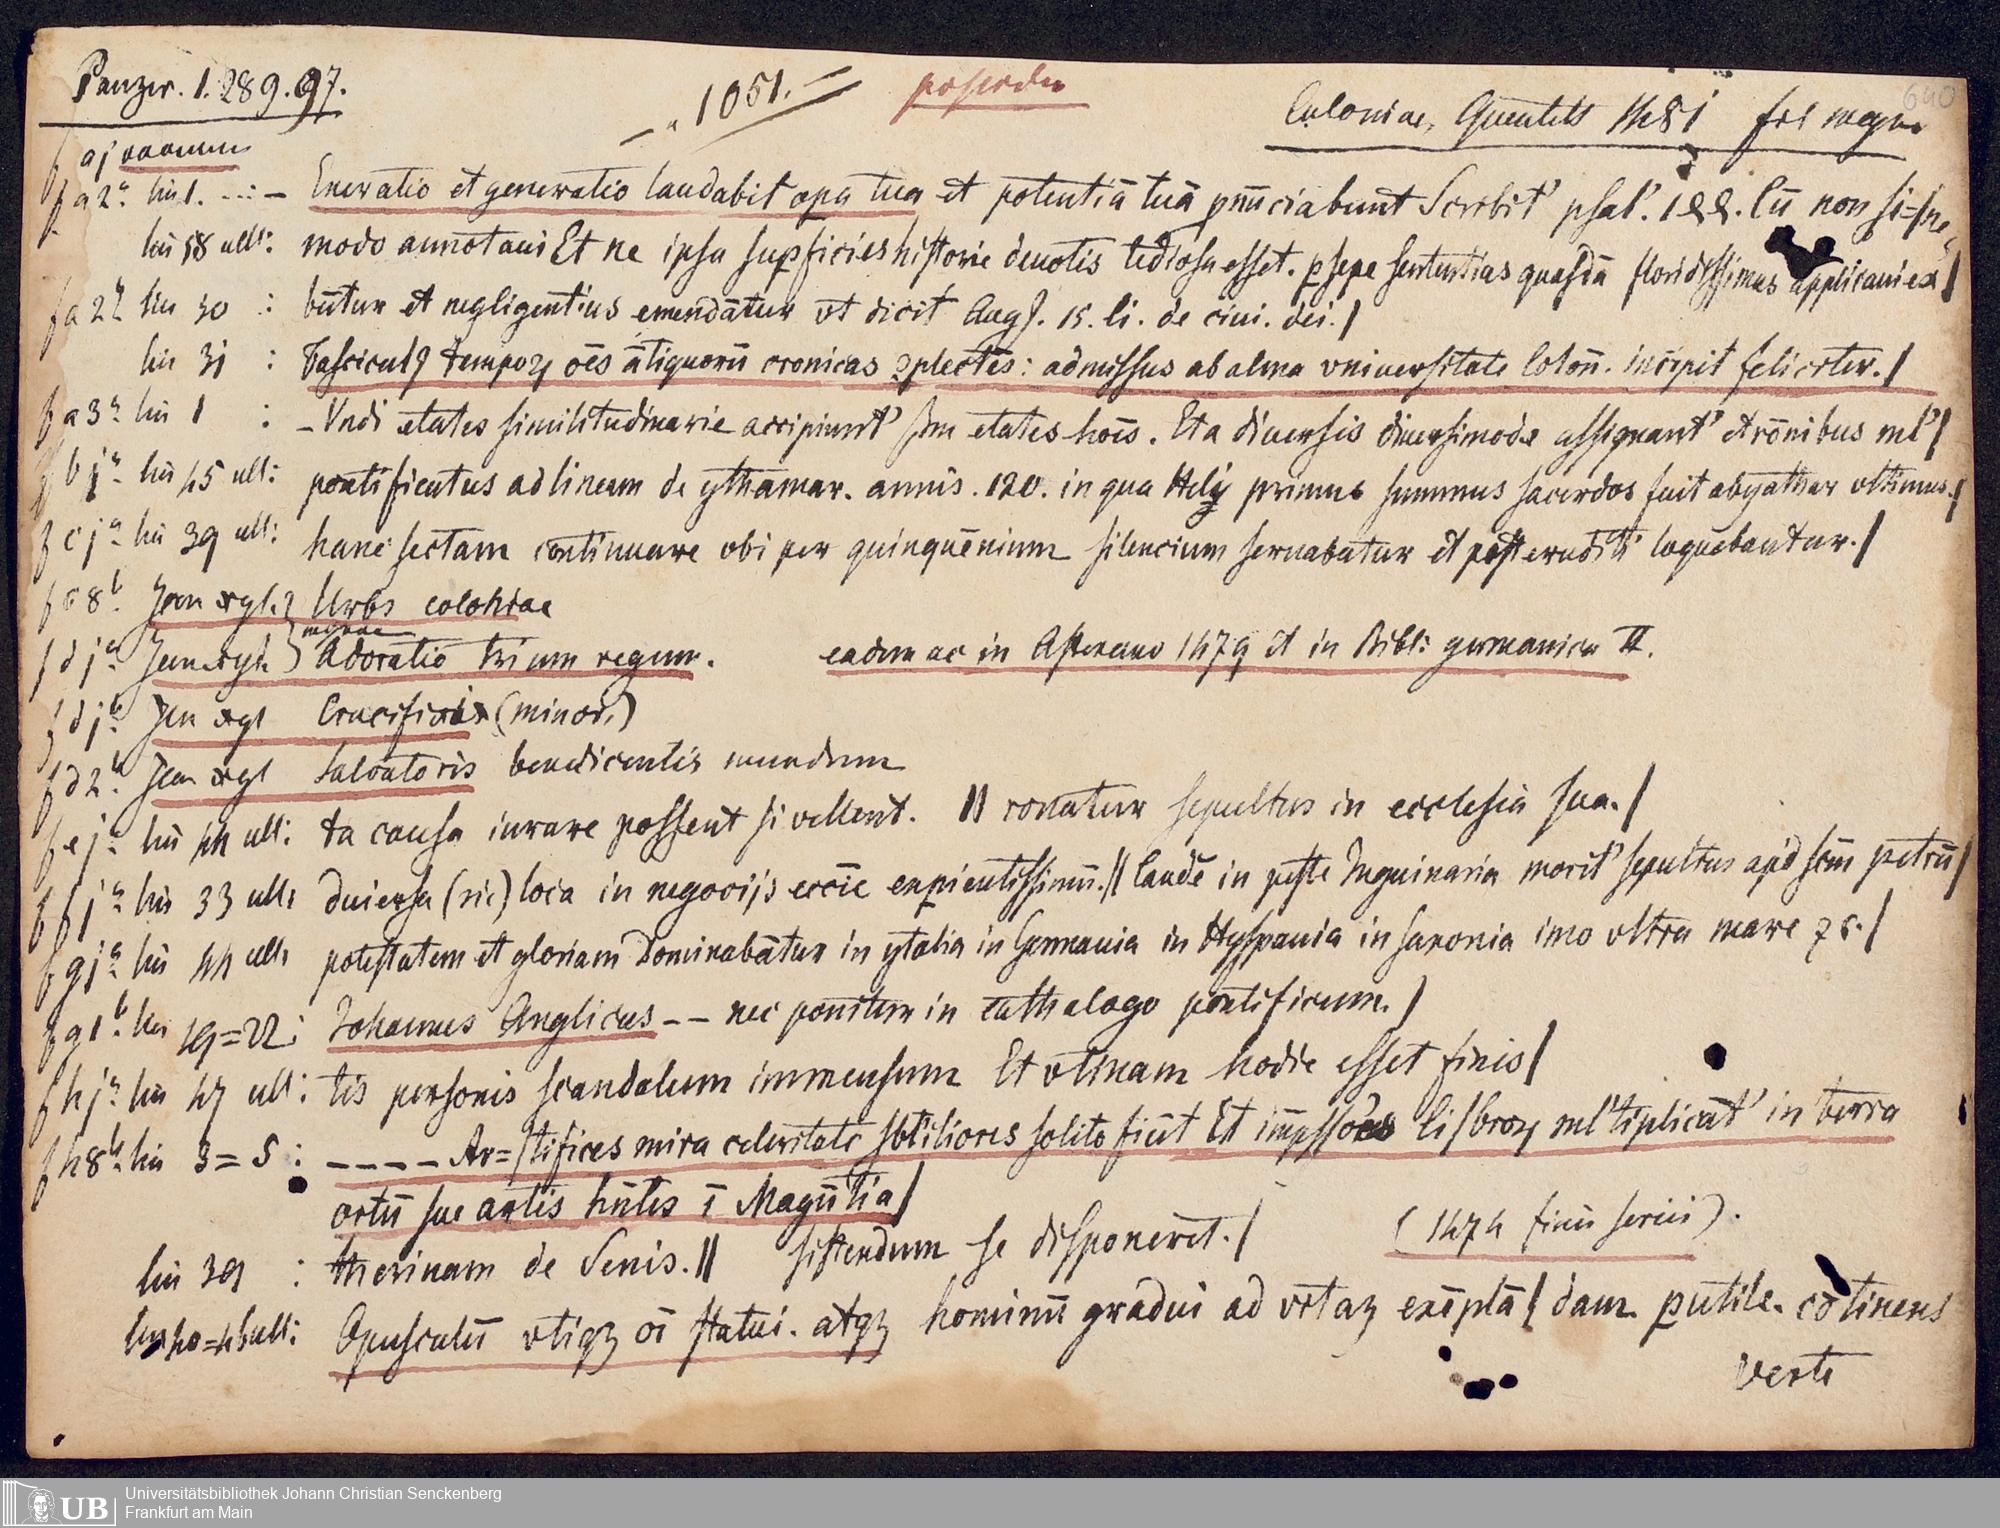 Panzer. 1. 289. 97.
1051.
Coloniae, Quentell 1481 fol
640
f aj vacuum
f a2a lin 1. ...:— Eneratio et generatio laudabit opa tua et potentiā tuā pnūciabunt Scribit' psal'. 144. Cū non si=/ne
lin 48 ult: modo annotavi Et ne ipsa supficies historie devotis tediosa esset. psepe sententias quasdā floridissimas applicavi ex/
f a2b lin 30 : būtur et negligentius emendātur vt dicit Aug. 15. li. de civi. dei./
lin 31 : Fascicul9 tempoꝝ oēs ātiquorū cronicas ꝯplectēs: admissus ab alma vniversitate Colon̄. incipit feliciter./
f a3a lin 1 : – Vndi etates similitudinarie accipiunt' Sm etates hoīs. Et a diversis diversimode assignant' et rōnibus ml'/
f bja lin 45 ult: pontificatus ad lineam de ythamar. annis. 120. in qua Hely primus summus sacerdos fuit abyathar vltimus./
f cja lin 39 ult: hanc sectam continuare vbi per quinquēnium silencium servabatur et post eruditi loquebantur./
f c8b. Icon xyl. Urbs coloniae
f dja Icon xyl. Adoratio trium regum. eadem ac in 1479 et in Bibl: germanica II.
f djb. Icon xyl Crucifixi (minor.)
f d2b. Icon xyl Salvatoris benedicentis mundum
f eja lin 44 ult: ta causa iurare possent si vellent. || ronatur sepultus in ecclesia sua./
f fja lin 33 ult: duiersa (sic) loca in negocijs eccīe expientissimū.|| laudē in peste Inguinaria morit' sepultus apd scm̄ petrū/
f gja lin 44 ult: potestatem et gloriam Dominabātur in ytalia in Germania in Hyspania in saxonia imo vltra mare ⁊c./
f g1b lin 19=22: Johannes Anglicus –– nec ponitur in cathalogo pontificum./
f hja lin 47 ult: tis personis scandalum immensum Et vtinam hodie esset finis/
f h8b. lin 3=5: –––– Ar=/tifices mira celeritate sbtiliores solito fiūt Et īmpssores li/broꝝ ml'tiplicāt' in terra
ortū sue artis hn̄tes ī Magūtia/
lin 39 : therinam de Senis.|| sistendum se disponeret./ (1474 finis seriei).
lin 40=48 ult: Opusculū vtiqꝫ oī statui. atqꝫ hominū gradui ad vitaꝫ exēpla/ dam putile. cōtinens
verte
Universitätsbibliothek Johann Christian Senckenberg
UB Frankfurt am Main